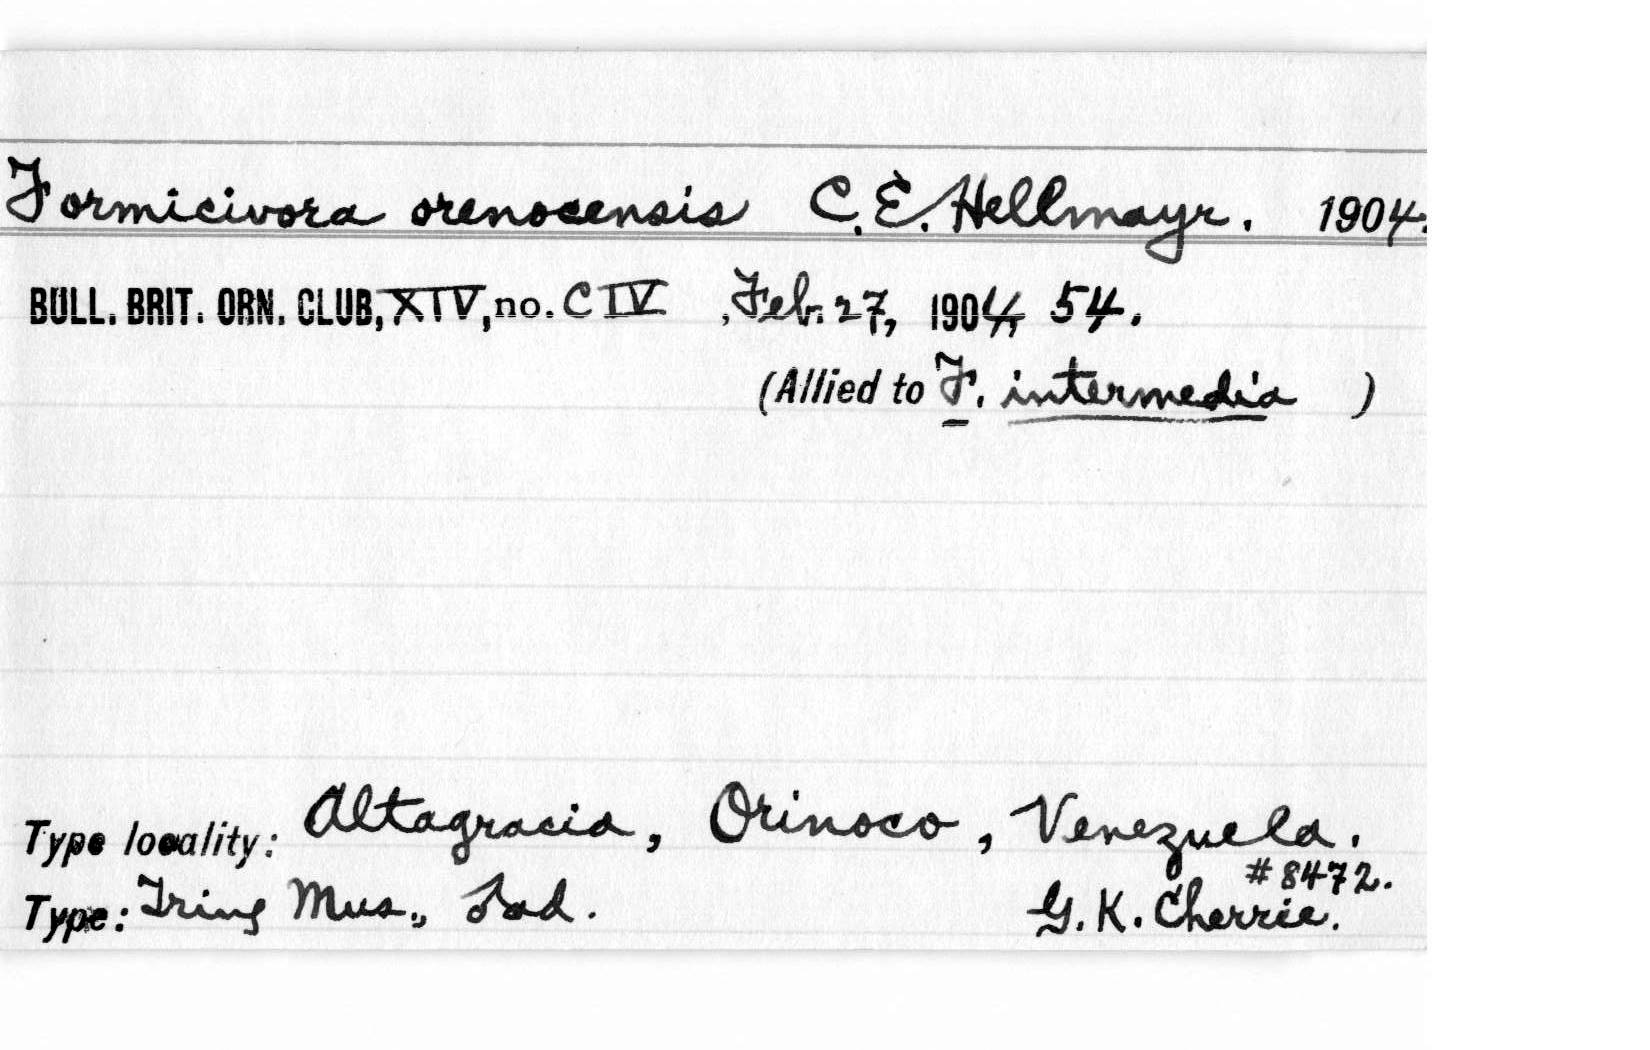 Formicivora orenocensis C. E. Hellmayr. 1904.
BULL. BRIT. ORN. CLUB, XIV, no. CIV , Feb. 27, 1904, 54.
(Allied to F. intermedia )
Type locality: Altagracia, Orinoco, Venezuela.
#8472.
Type: Tring Mus., ♂ad. G. K. Cherrie.